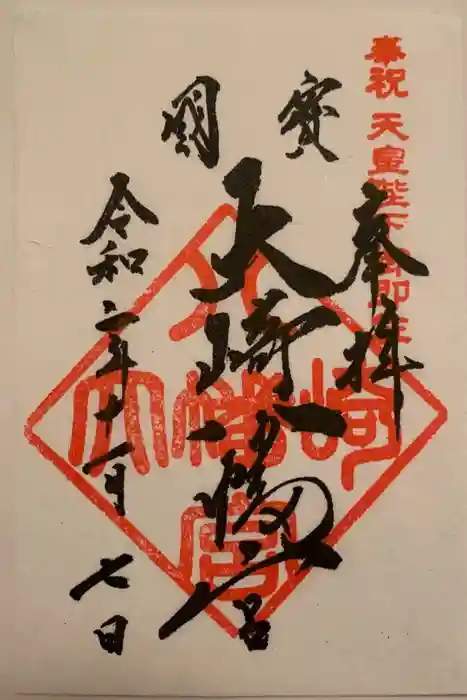 奉祝 天皇陛下御即位
奉拝
國寶
大崎八幡宮
令和二年十一月 七日
八
大幡崎
宮